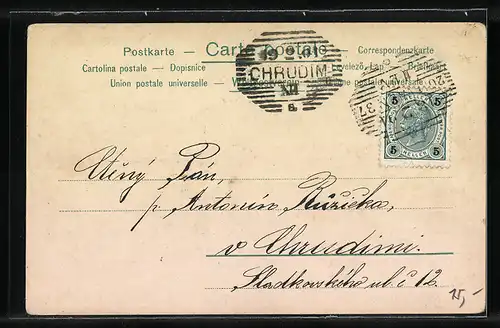 Postkarte — Carte postale Correspondenzkarte
Cartolina postale — Dopisnice — Briefkaart
Union postale universelle — postale universale
CHRUDIM
XII
6.
5 5
5 HELLER 5
Ctěný Pán,
p. Antonín Růžička,
v Chrudimi.
Sladkovského ul. č 12.
15,-